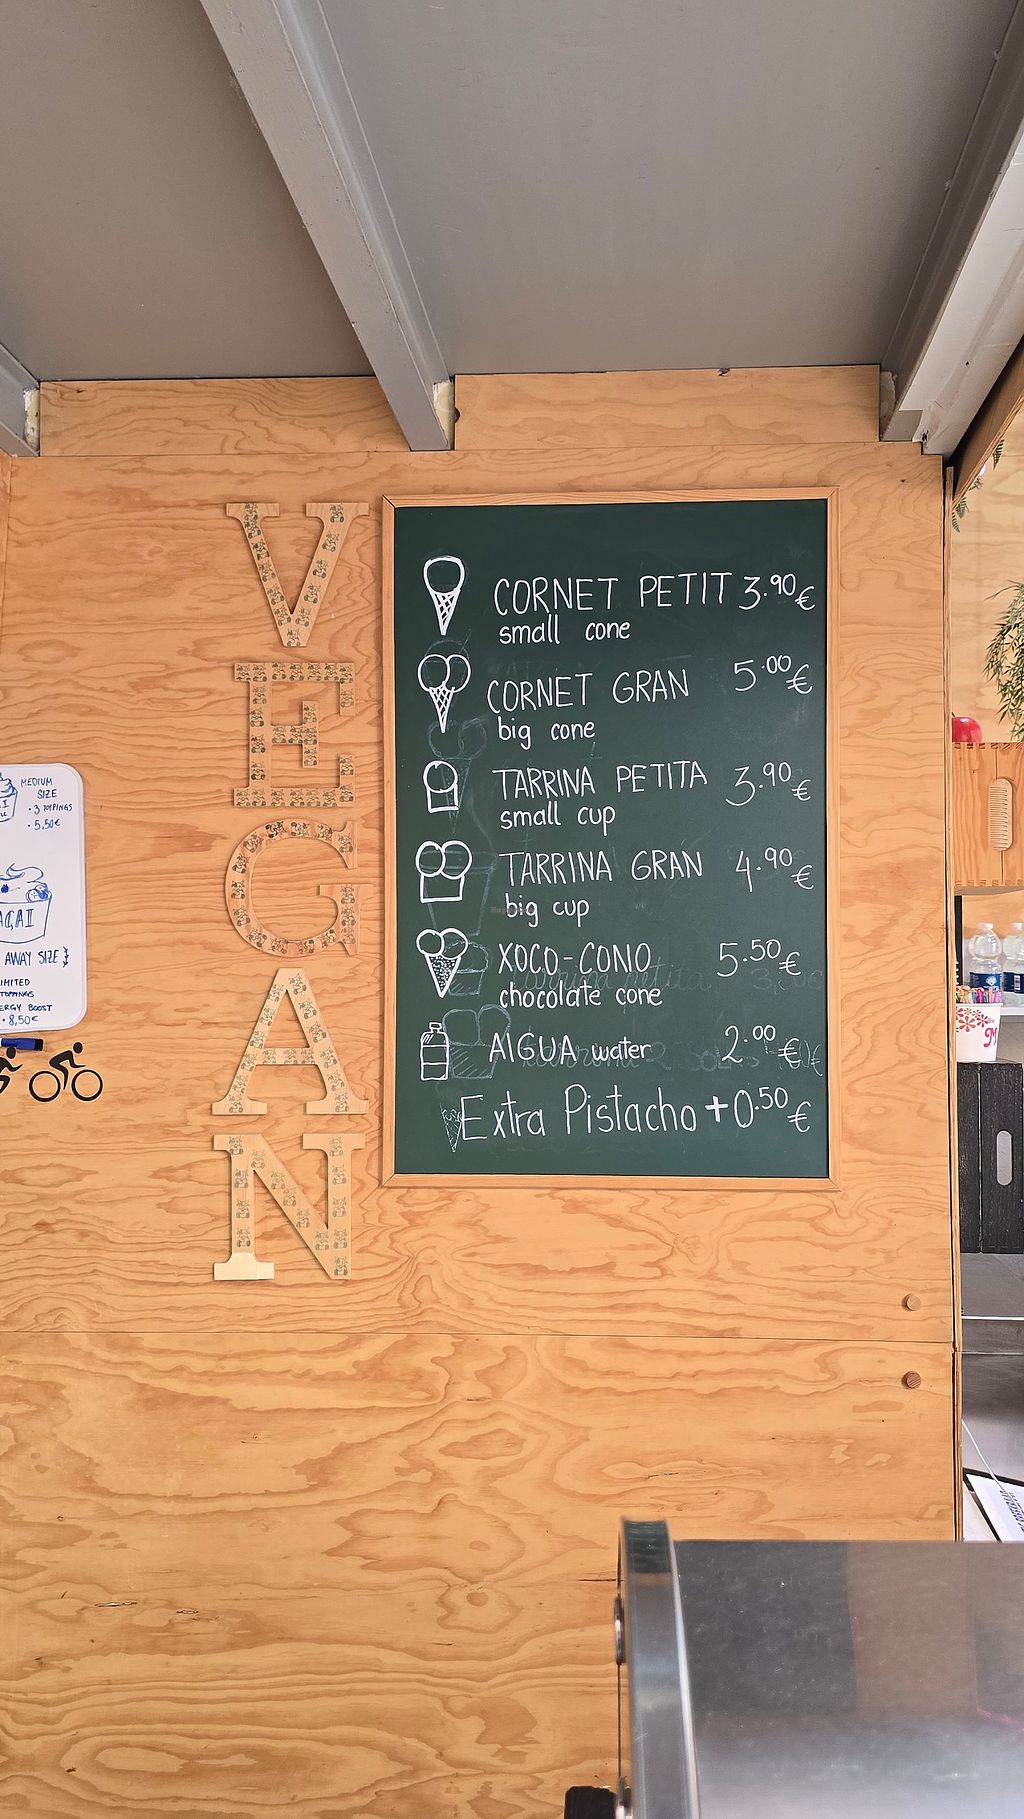 VEGAN
CORNET PETIT 3.90€
small cone
CORNET GRAN 5.00€
big cone
TARRINA PETITA 3.90€
small cup
TARRINA GRAN 4.90€
big cup
XOCO-CONO 5.50€
chocolate cone
AIGUA water 2.00€
Extra Pistacho +0.50€
MEDIUM
SIZE
• 3 TOPPINGS
• 5,50€
AÇAI
AWAY SIZE
• 8,50€